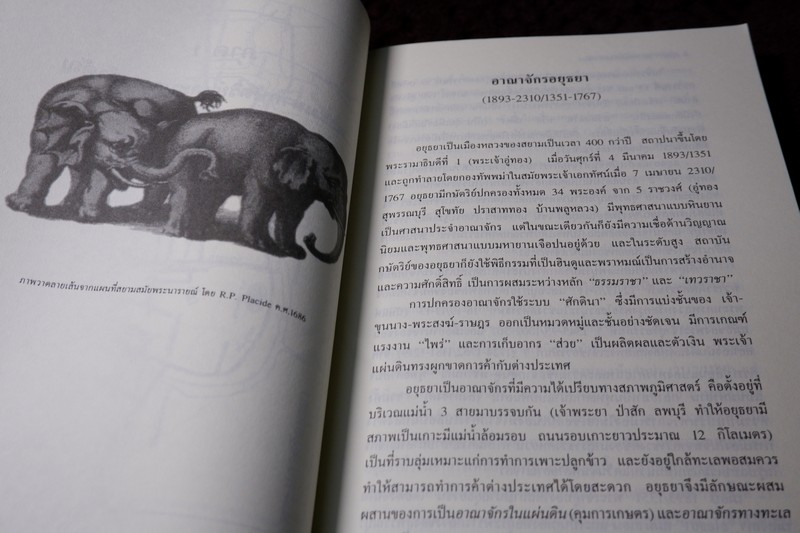 ภาพวาดลายเส้นจากแผนที่สยามสมัยพระนารายณ์ โดย R.P. Placide ค.ศ.1686
อาณาจักรอยุธยา
(1893-2310/1351-1767)
อยุธยาเป็นเมืองหลวงของสยามเป็นเวลา 400 กว่าปี สถาปนาขึ้นโดย
พระรามาธิบดีที่ 1 (พระเจ้าอู่ทอง) เมื่อวันศุกร์ที่ 4 มีนาคม 1893/1351
และถูกทำลายโดยกองทัพพม่าในสมัยพระเจ้าเอกทัศน์เมื่อ 7 เมษายน 2310/
1767 อยุธยามีกษัตริย์ปกครองทั้งหมด 34 พระองค์ จาก 5 ราชวงศ์ (อู่ทอง
สุพรรณบุรี สุโขทัย ปราสาททอง บ้านพลูหลวง) มีพุทธศาสนาแบบหินยาน
เป็นศาสนาประจำอาณาจักร แต่ในขณะเดียวกันก็ยังมีความเชื่อด้านวิญญาณ
นิยมและพุทธศาสนาแบบมหายานเจือปนอยู่ด้วย และในระดับสูง สถาบัน
กษัตริย์ของอยุธยาก็ยังใช้พิธีกรรมที่เป็นฮินดูและพราหมณ์เป็นการสร้างอำนาจ
และความศักดิ์สิทธิ์ เป็นการผสมระหว่างหลัก “ธรรมราชา” และ “เทวราชา”
การปกครองอาณาจักรใช้ระบบ “ศักดินา” ซึ่งมีการแบ่งชั้นของ เจ้า-
ขุนนาง-พระสงฆ์-ราษฎร ออกเป็นหมวดหมู่และชั้นอย่างชัดเจน มีการเกณฑ์
แรงงาน “ไพร่” และการเก็บอากร “ส่วย” เป็นผลิตผลและตัวเงิน พระเจ้า
แผ่นดินทรงผูกขาดการค้ากับต่างประเทศ
อยุธยาเป็นอาณาจักรที่มีความได้เปรียบทางสภาพภูมิศาสตร์ คือตั้งอยู่ที่
บริเวณแม่น้ำ 3 สายมาบรรจบกัน (เจ้าพระยา ป่าสัก ลพบุรี ทำให้อยุธยามี
สภาพเป็นเกาะมีแม่น้ำล้อมรอบ ถนนรอบเกาะยาวประมาณ 12 กิโลเมตร)
เป็นที่ราบลุ่มเหมาะแก่การทำการเพาะปลูกข้าว และยังอยู่ใกล้ทะเลพอสมควร
ทำให้สามารถทำการค้าต่างประเทศได้โดยสะดวก อยุธยาจึงมีลักษณะผสม
ผสานของการเป็นอาณาจักรในแผ่นดิน (คุมการเกษตร) และอาณาจักรทางทะเล